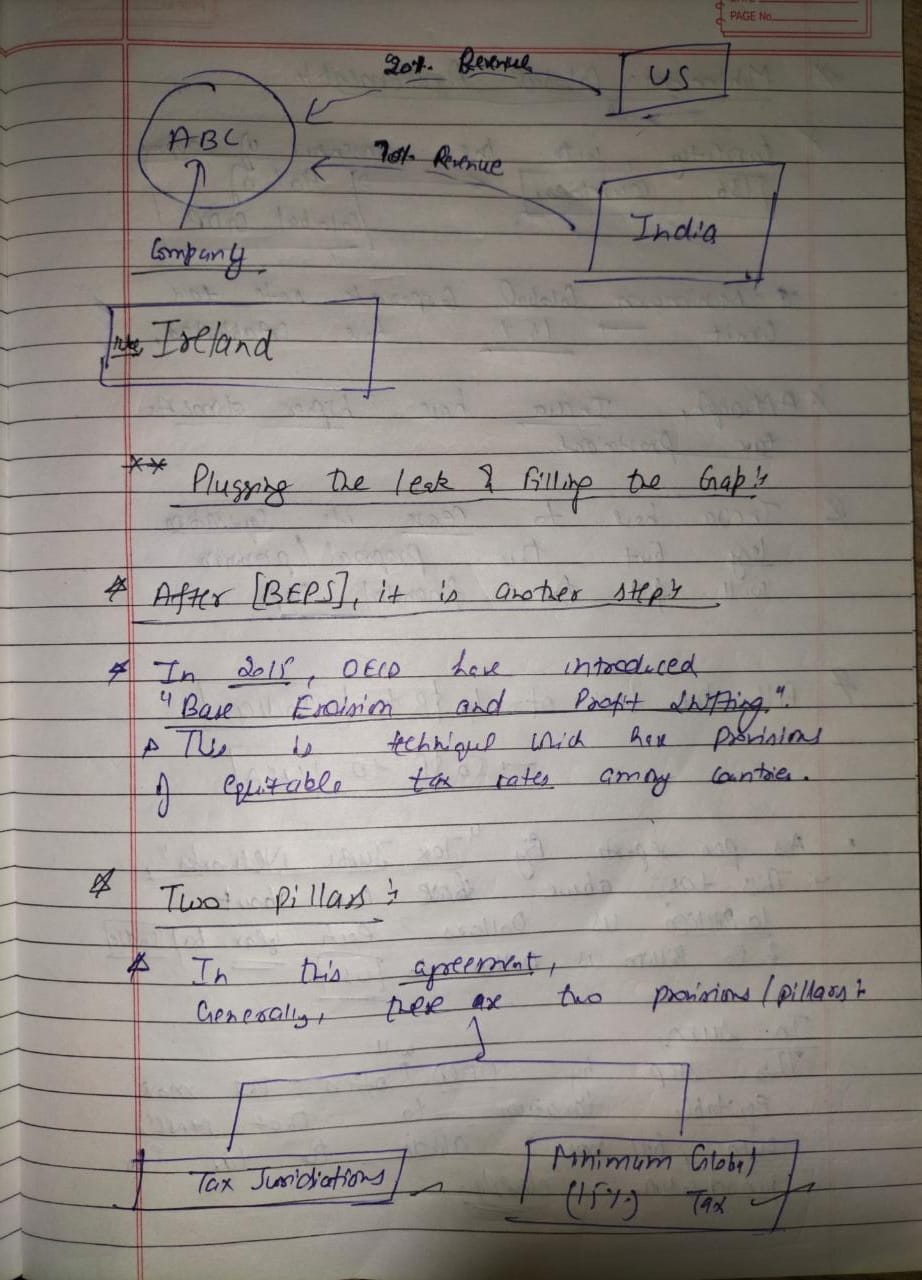 PAGE No.
20% Revenue
US
ABC
70% Revenue
India
Company.
Ireland
** Plugging the leak & filling the Gap:
After [BEPS], it is another step:
In 2015, OECD have introduced
"Base Eroision and Profit Shifting."
This is technique which have provisions
of equitable tax rates among countries.
Two pillars:
In this agreement,
Generally, there are two provisions/pillars:
Tax Jurisidiations
Minimum Global
(15%) Tax